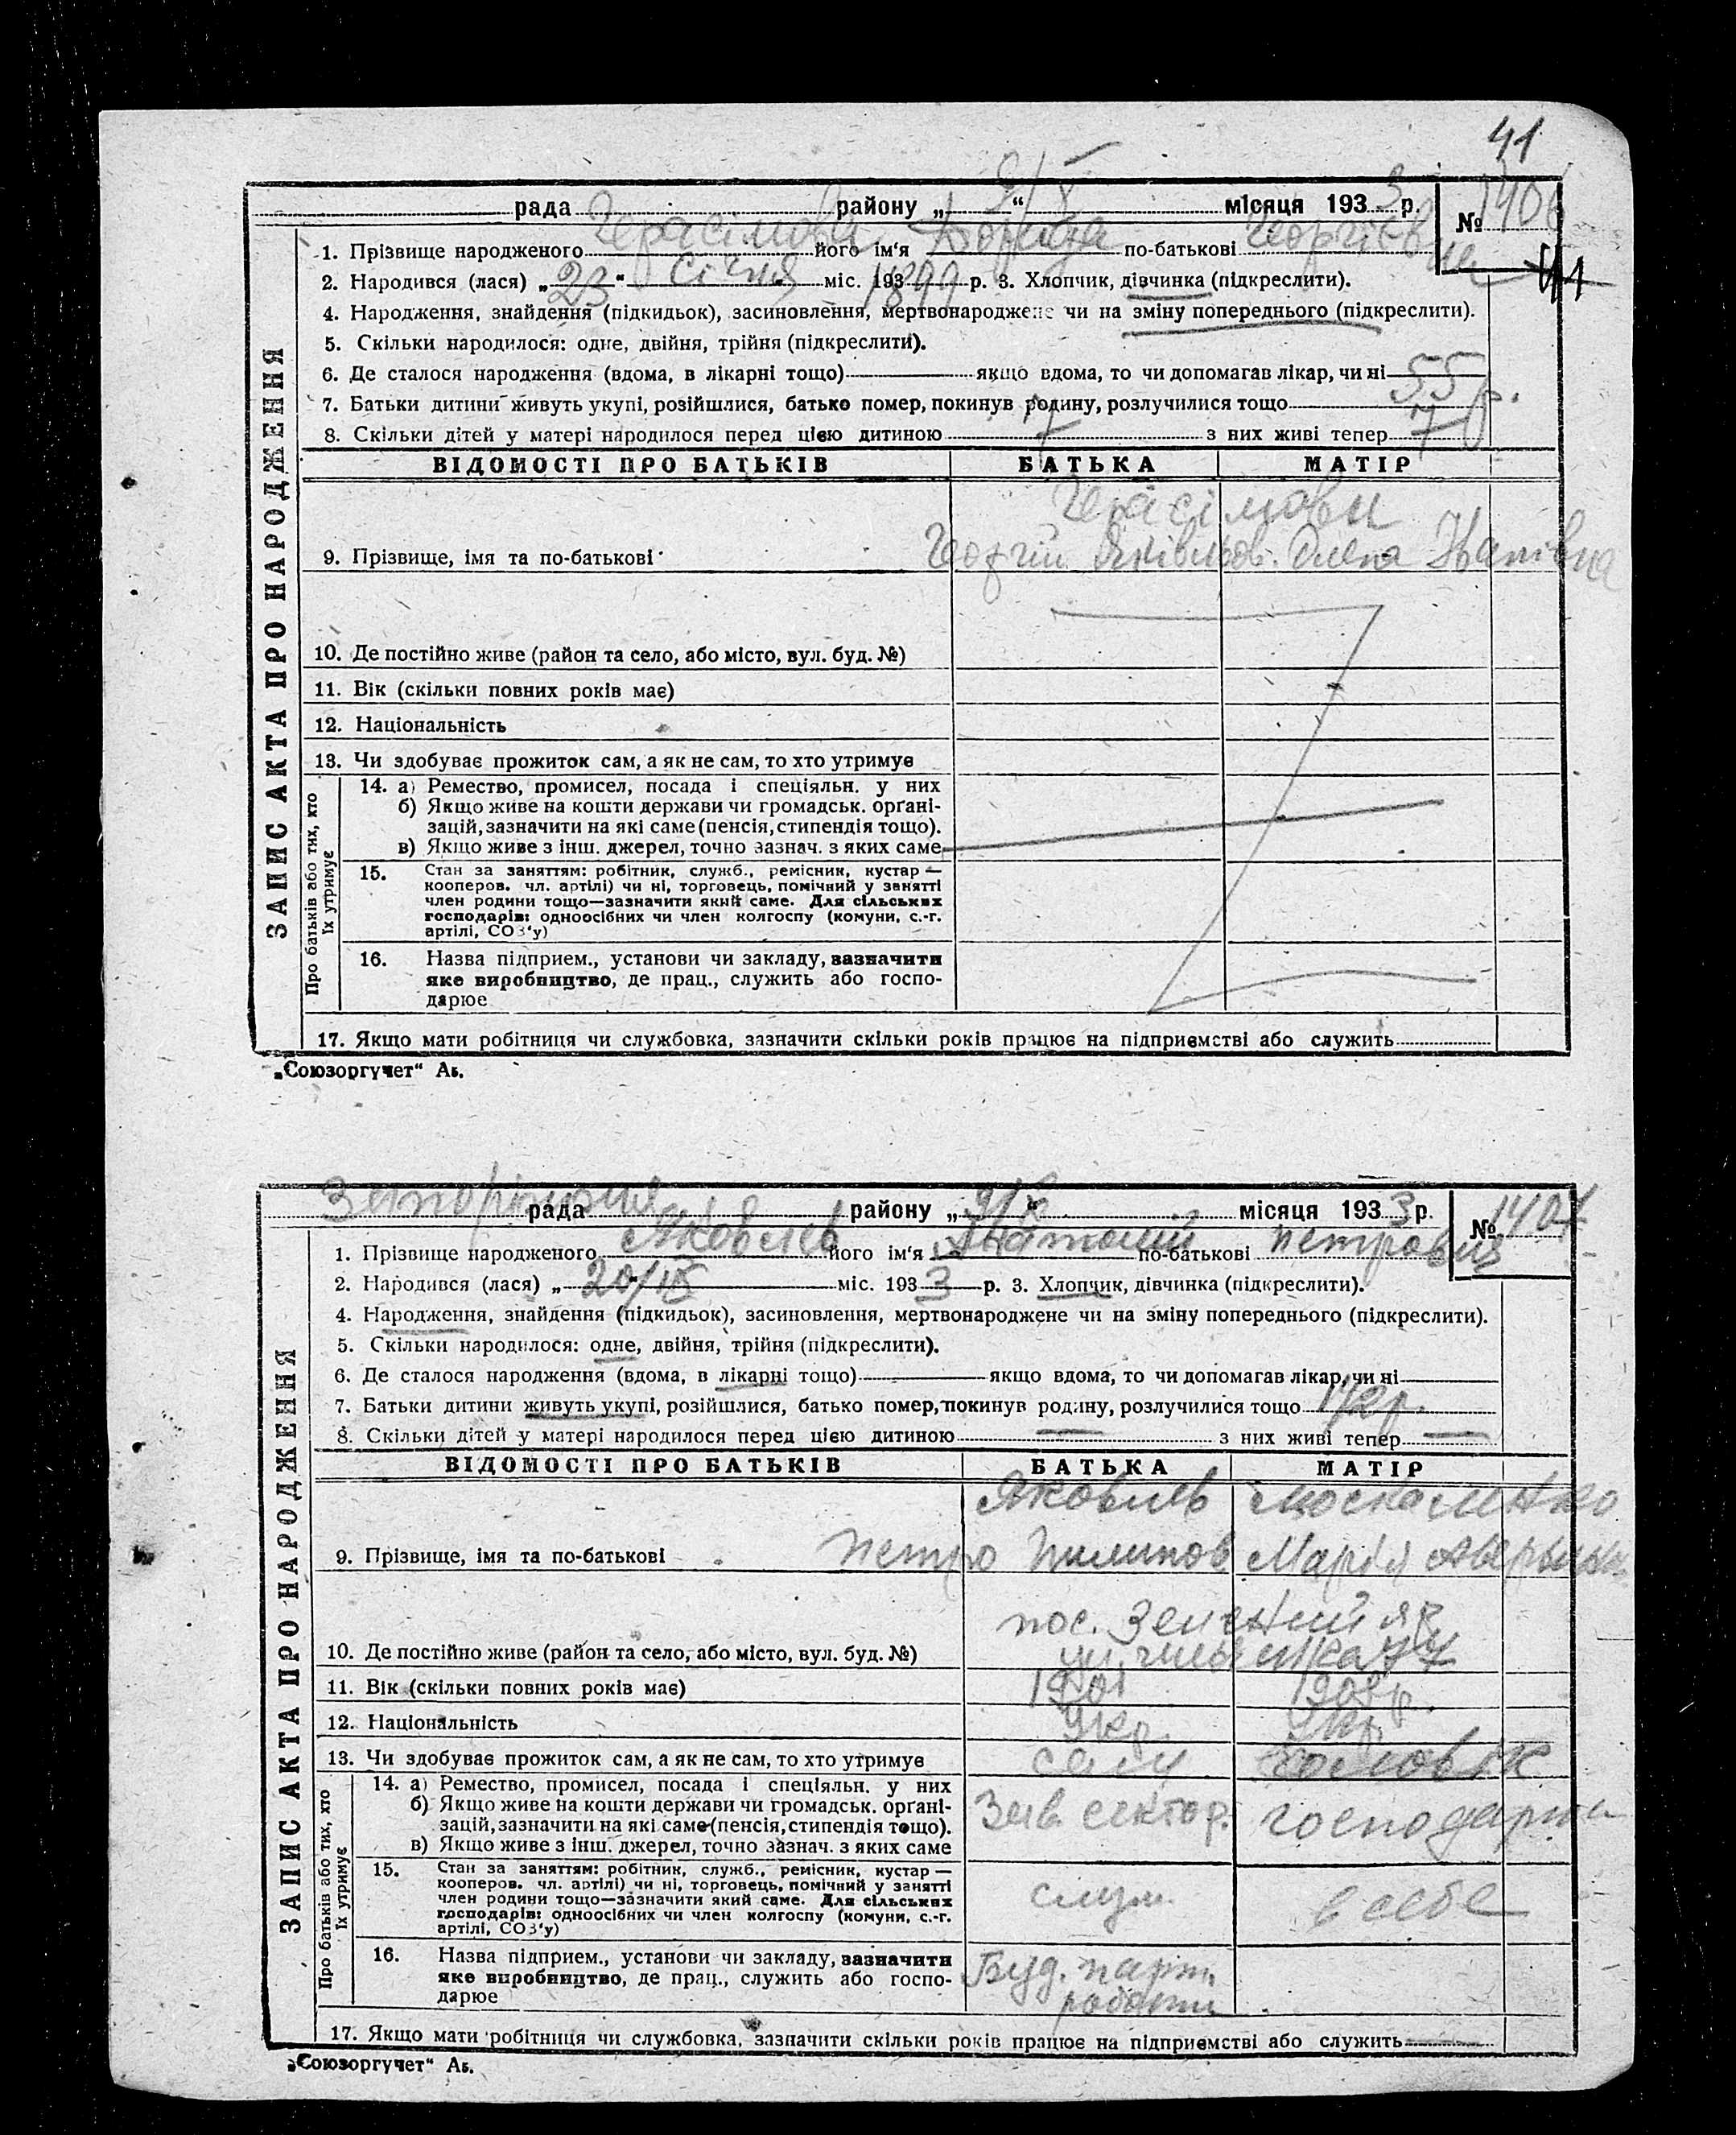 41
рада района „ 9/X “ місяця 1933 р. № 1406
1. Прізвище народженого Герасімова його ім'я по-батькові Георгієвна
2. Народився (лася) „ 23 “ Січня міс. 193 1899 р. 3. Хлопчик, дівчинка (підкреслити).
4. Народження, знайдення (підкидьок), засиновлення, мертвонароджене чи на зміну попереднього (підкреслити).
5. Скільки народилося: одне, двійня, трійня (підкреслити).
6. Де сталося народження (вдома, в лікарні тощо) якщо вдома, то чи допомагав лікар, чи ні
55 р.
7. Батьки дитини живуть укупі, розійшлися, батько помер, покинув родину, розлучилися тощо
8. Скільки дітей у матері народилося перед цією дитиною 7 з них живі тепер 7
ВІДОМОСТІ ПРО БАТЬКІВ БАТЬКА МАТІР
Герасімови
9. Прізвище, імя та по-батькові Георгій Олена
10. Де постійно живе (район та село, або місто, вул. буд. №)
11. Вік (скільки повних років має)
12. Національність
13. Чи здобуває прожиток сам, а як не сам, то хто утримує
14. а) Ремество, промисел, посада і спеціяльн. у них
б) Якщо живе на кошти держави чи громадськ. орґані-
зацій, зазначити на які саме (пенсія, стипендія тощо).
в) Якщо живе з інш. джерел, точно зазнач. з яких саме
15. Стан за заняттям: робітник, служб., ремісник, кустар —
кооперов. чл. артілі) чи ні, торговець, помічний у занятті
член родини тощо—зазначити який саме. Для сільських
господарів: одноосібних чи член колгоспу (комуни, с.-г.
артілі, СОЗ'у)
16. Назва підприем., установи чи закладу, зазначити
яке виробництво, де прац., служить або госпо-
дарює
17. Якщо мати робітниця чи службовка, зазначити скільки років працює на підприємстві або служить
ЗАПИС АКТА ПРО НАРОДЖЕННЯ
Про батьків або тих, хто
їх утримує
„Союзоргучет“ Аб.
рада району „ 9/X “ місяця 1933 р. № 1407
1. Прізвище народженого Яковлев його ім'я Анатолій по-батькові Петрович
2. Народився (лася) „ 20/IX “ міс. 1933 р. 3. Хлопчик, дівчинка (підкреслити).
4. Народження, знайдення (підкидьок), засиновлення, мертвонароджене чи на зміну попереднього (підкреслити).
5. Скільки народилося: одне, двійня, трійня (підкреслити).
6. Де сталося народження (вдома, в лікарні тощо) якщо вдома, то чи допомагав лікар, чи ні
7. Батьки дитини живуть укупі, розійшлися, батько помер, покинув родину, розлучилися тощо
8. Скільки дітей у матері народилося перед цією дитиною — з них живі тепер —
ВІДОМОСТІ ПРО БАТЬКІВ БАТЬКА МАТІР
Яковлев Москаленко
9. Прізвище, імя та по-батькові Петро Пилипов Марія
пос. Зелений яр
10. Де постійно живе (район та село, або місто, вул. буд. №)
11. Вік (скільки повних років має) 1901
12. Національність Укр. Укр.
13. Чи здобуває прожиток сам, а як не сам, то хто утримує сам чоловік
14. а) Ремество, промисел, посада і спеціяльн. у них
б) Якщо живе на кошти держави чи громадськ. орґані-
Зав. сектор. господарка
зацій, зазначити на які саме (пенсія, стипендія тощо).
в) Якщо живе з інш. джерел, точно зазнач. з яких саме
15. Стан за заняттям: робітник, служб., ремісник, кустар —
кооперов. чл. артілі) чи ні, торговець, помічний у занятті
служ. в себе
член родини тощо—зазначити який саме. Для сільських
господарів: одноосібних чи член колгоспу (комуни, с.-г.
артілі, СОЗ'у)
16. Назва підприем., установи чи закладу, зазначити
яке виробництво, де прац., служить або госпо-
Буд. парт.
дарює
роботи
17. Якщо мати робітниця чи службовка, зазначити скільки років працює на підприємстві або служить
ЗАПИС АКТА ПРО НАРОДЖЕННЯ
Про батьків або тих, хто
їх утримує
„Союзоргучет“ Аб.